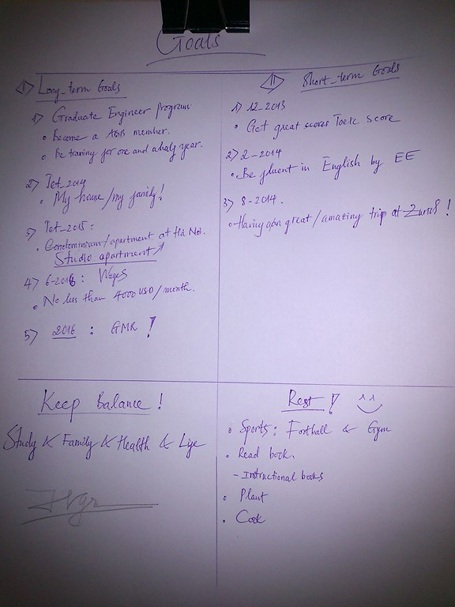 Goals
1 Long-term Goals
1) Graduate Engineer Program
• Become a ABB member.
• Be training for one and a half year.
2) Tet 2014
• My house/my family!
3) Tet-2015:
• Condominium/apartment at Ha Noi.
Studio apartment
4) 6-2016: Wages
• No less than 4000 USD/month.
5) 2016 : GMR !
II Short-term Goals
1) 12-2013
• Get great scores Toeic score
2) 2-2014
• Be fluent in English by EE
3) 8-2014.
• Having great/amazing trip at !
Keep Balance !
Study & Family & Health & Life
Rest !
• Sports: Football & Gym
• Read book.
- Instructional books
• Plant
• Cook